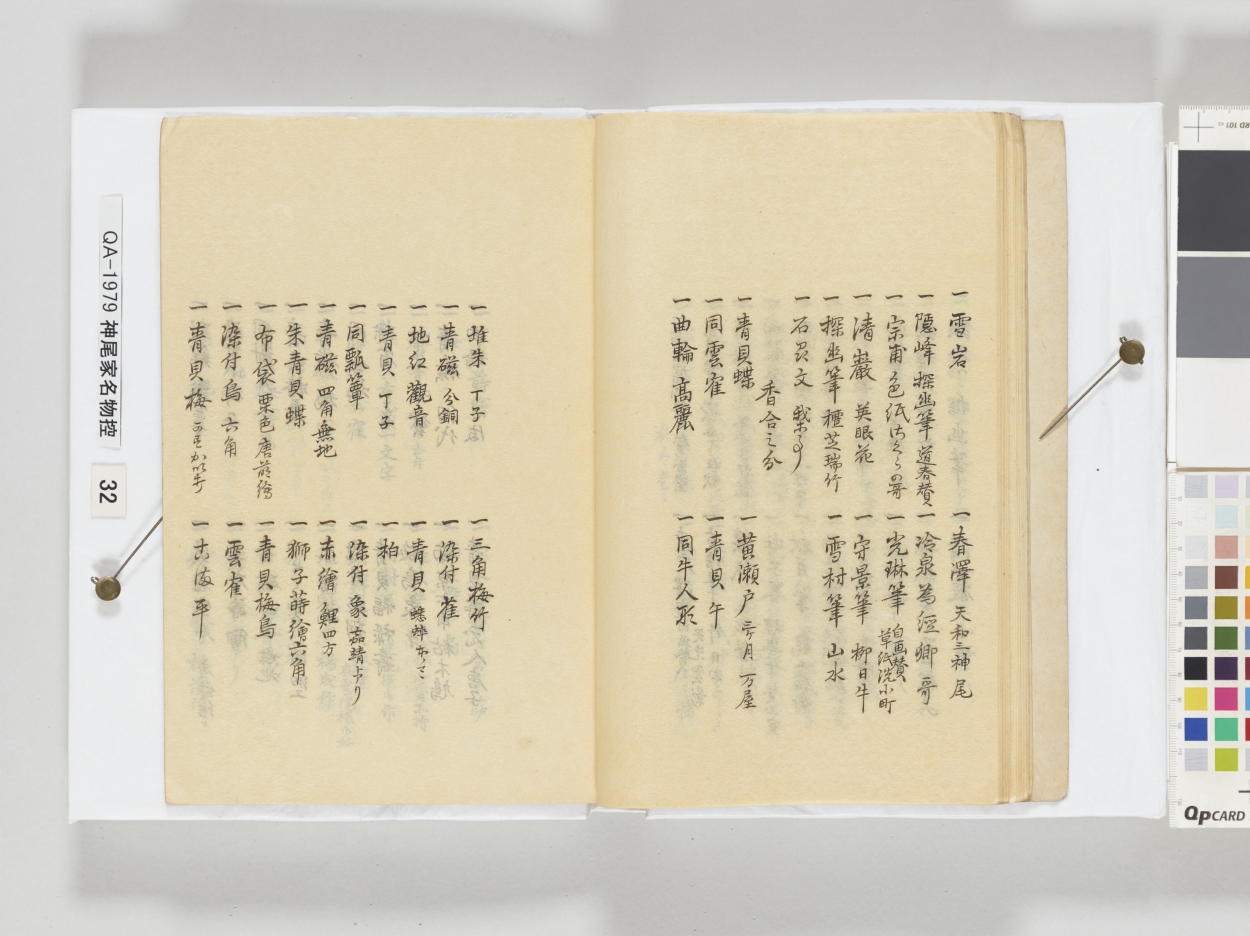 一 雪岩
一 隠峰 探幽筆 道春賛
一 宗甫 色紙 さくらの哥
一 清巌 英眼花
一 探幽筆 種芝瑞竹
一 石
香合之分
一 青貝蝶
一 同雲雀
一 曲輪 高麗
一 春澤 天和三神尾
一 冷泉為經卿 哥
一 光琳筆 自画賛 草紙洗小町
一 守景筆 柳日牛
一 雪村筆 山水
一 黄瀬戸 三ケ月 万屋
一 青貝 午
一 同牛人形
一 堆朱 丁子
一 青磁 分銅
一 地紅 觀音
一 青貝 丁子
一 同瓢箪
一 青磁 四角無地
一 朱青貝蝶
一 布袋 栗色唐蒔繪
一 染付鳥 六角
一 青貝梅
一 三角梅竹
一 染付 雀
一 青貝 蟋蟀
一 柏
一 染付 象 嘉靖より
一 赤繪 鯉四方
一 獅子蒔繪六角
一 青貝梅鳥
一 雲雀
一
QA-1979 神尾家名物控
32
QPCARD